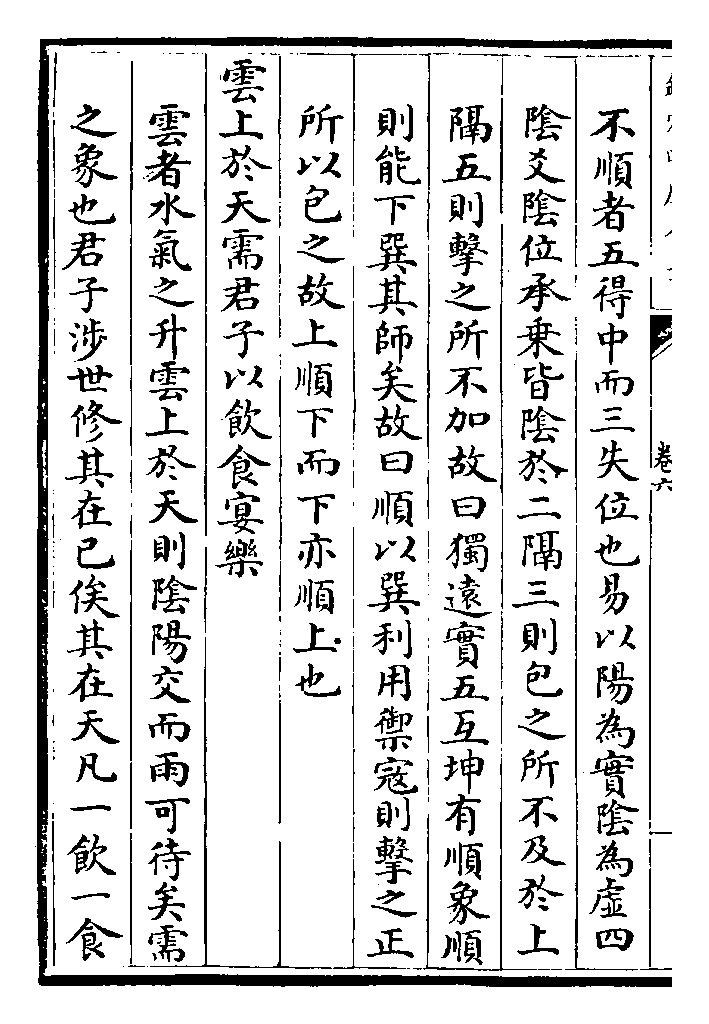 卷六
不順者五得中而三失位也易以陽為實陰為虛四
陰爻陰位承乗皆陰於二隔三則包之所不及於上
隔五則擊之所不加故曰獨遠實五互坤有順象順
則能下巽其師矣故曰順以巽利用禦寇則擊之正
所以包之故上順下而下亦順上也
雲上於天需君子以飲食宴樂
雲者水氣之升雲上於天則陰陽交而雨可待矣需
之象也君子涉世修其在已俟其在天凡一飲一食